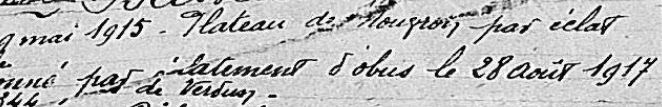 9 mai 1915 - Plateau de Nouvron par éclat
onné par éclatement d'obus le 28 août 1917
344, de Verdun -